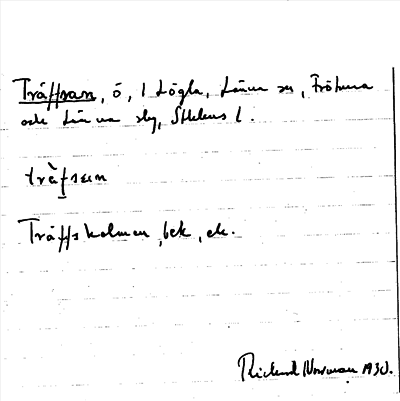 Träffsan, ö, i Lögla, Länna sn, Fröhuna
och Länna slg, Sthlms l.
träfsen
Träffsholmen, bek, ek.
Rickard Norman 1930.